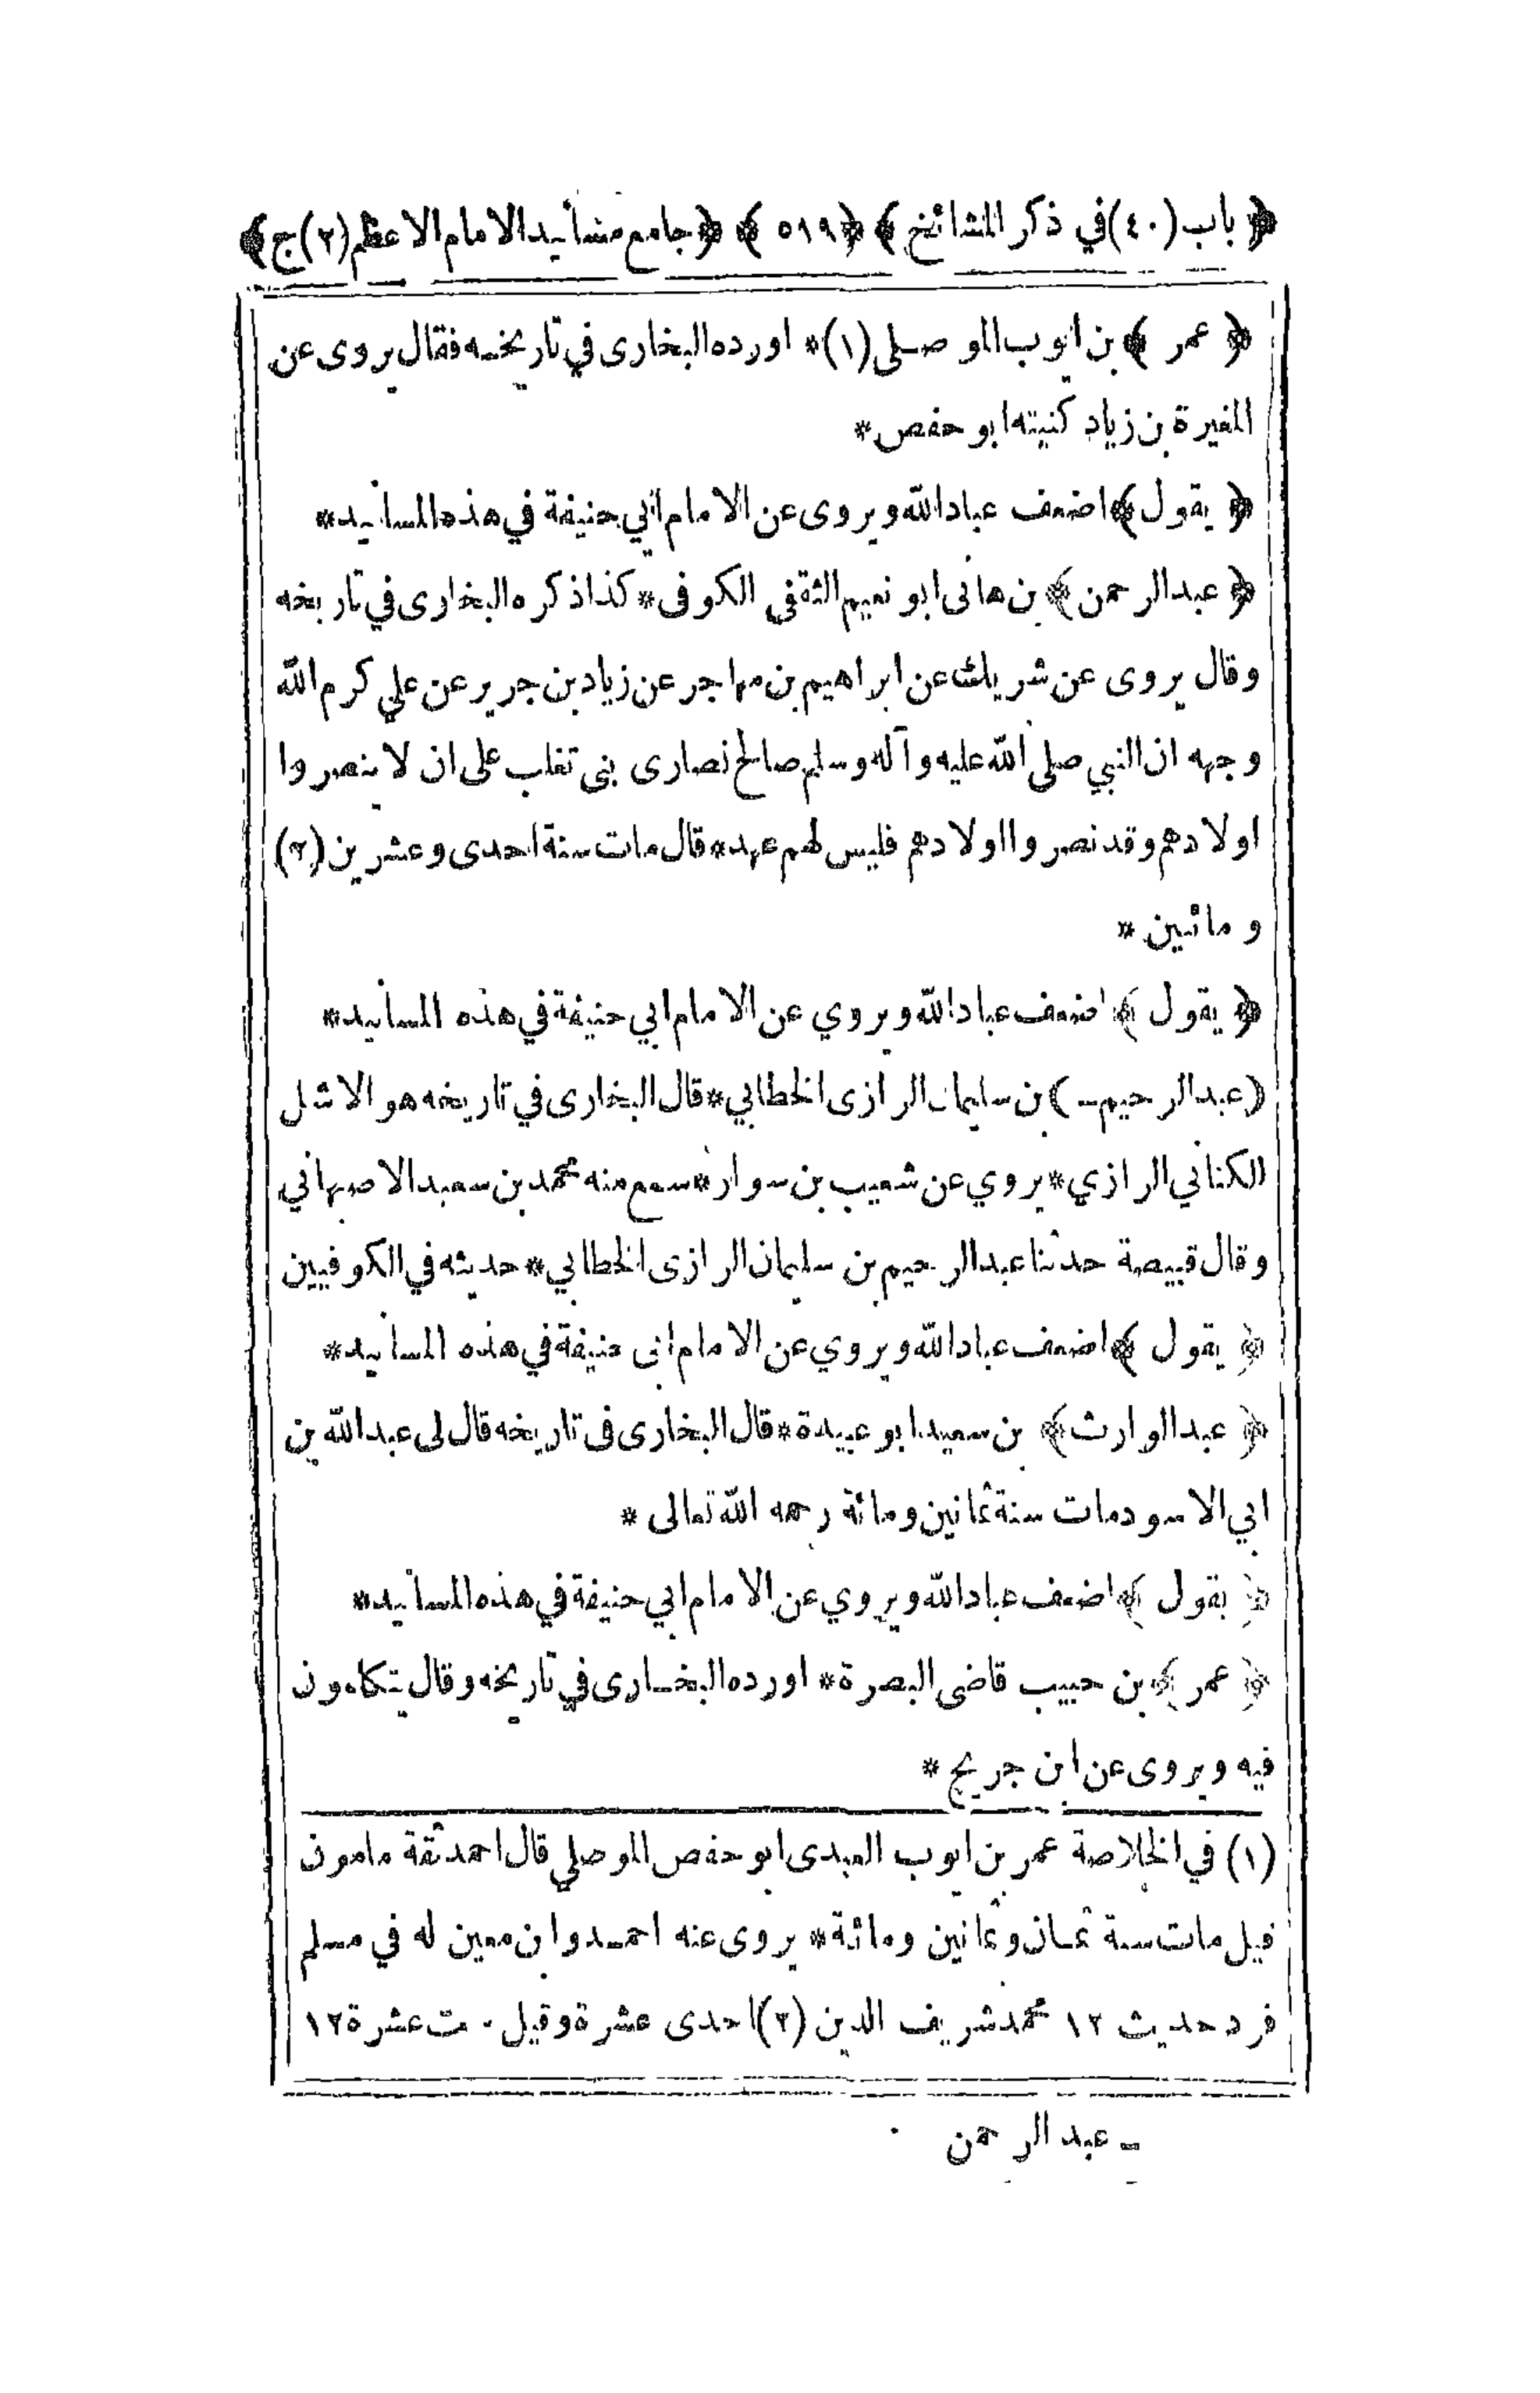 ﴿ باب (٤٠) في ذكر المشائخ ﴾ ﴿ ٥١٩ ﴾ ﴿ جامع مسانيد الامام الاعظم (٢) ج ﴾
﴿ عمر ﴾ بن ايوب الموصلى (١)* اورده البخارى في تاريخه فقال يروى عن
المغيرة بن زياد كنيته ابو حفص*
﴿ يقول ﴾ اضعف عباد الله ويروى عن الامام ابي حنيفة في هذه المسانيد*
﴿ عبد الرحمن ﴾ بن هانى ابو نعيم الثقفى الكوفى* كذا ذكره البخارى في تاريخه
وقال يروى عن شريك عن ابراهيم بن مهاجر عن زياد بن جرير عن علي كرم الله
وجهه ان النبي صلى الله عليه وآله وسلم صالح نصارى بنى تغلب على ان لا ينصروا
اولادهم وقد نصروا اولادهم فليس لهم عهد* قال مات سنة احدى وعشرين (٢)
ومائتين *
﴿ يقول ﴾ اضعف عباد الله ويروي عن الامام ابي حنيفة في هذه المسانيد*
(عبد الرحيم) بن سليمان الرازى الخطابي* قال البخارى في تاريخه هو الاشل
الكناني الرازي* يروي عن شعيب بن سوار* سمع منه محمد بن سعيد الاصبهاني
وقال قبيصة حدثنا عبد الرحيم بن سليمان الرازى الخطابي* حديثه في الكوفيين
﴿ يقول ﴾ اضعف عباد الله ويروي عن الامام ابى حنيفة في هذه المسانيد*
﴿ عبد الوارث ﴾ بن سعيد ابو عبيدة* قال البخارى فى تاريخه قال لى عبد الله بن
ابي الاسود مات سنة ثمانين ومائة رحمه الله تعالى *
﴿ يقول ﴾ اضعف عباد الله ويروي عن الامام ابي حنيفة في هذه المسانيد*
﴿ عمر ﴾ بن حبيب قاضى البصرة* اورده البخارى في تاريخه وقال يتكلمون
فيه ويروى عن ابن جريج *
(١) في الخلاصة عمر بن ايوب العبدى ابو حفص الموصلي قال احمد ثقة مامون
قيل مات سنة ثمان وثمانين ومائة* يروى عنه احمد وابن معين له في مسلم
فرد حديث ١٢ محمد شريف الدين (٢) احدى عشرة وقيل ست عشرة ١٢
عبد الرحمن